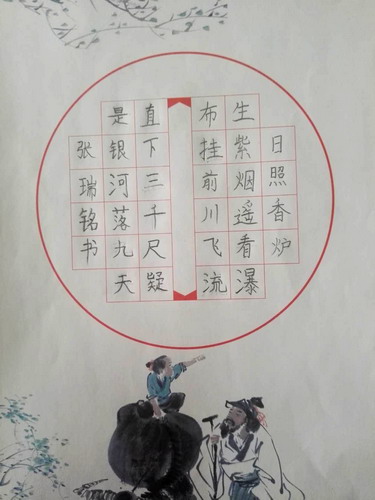 日照香炉
生紫烟遥看瀑
布挂前川飞流
直下三千尺疑
是银河落九天
张瑞铭书